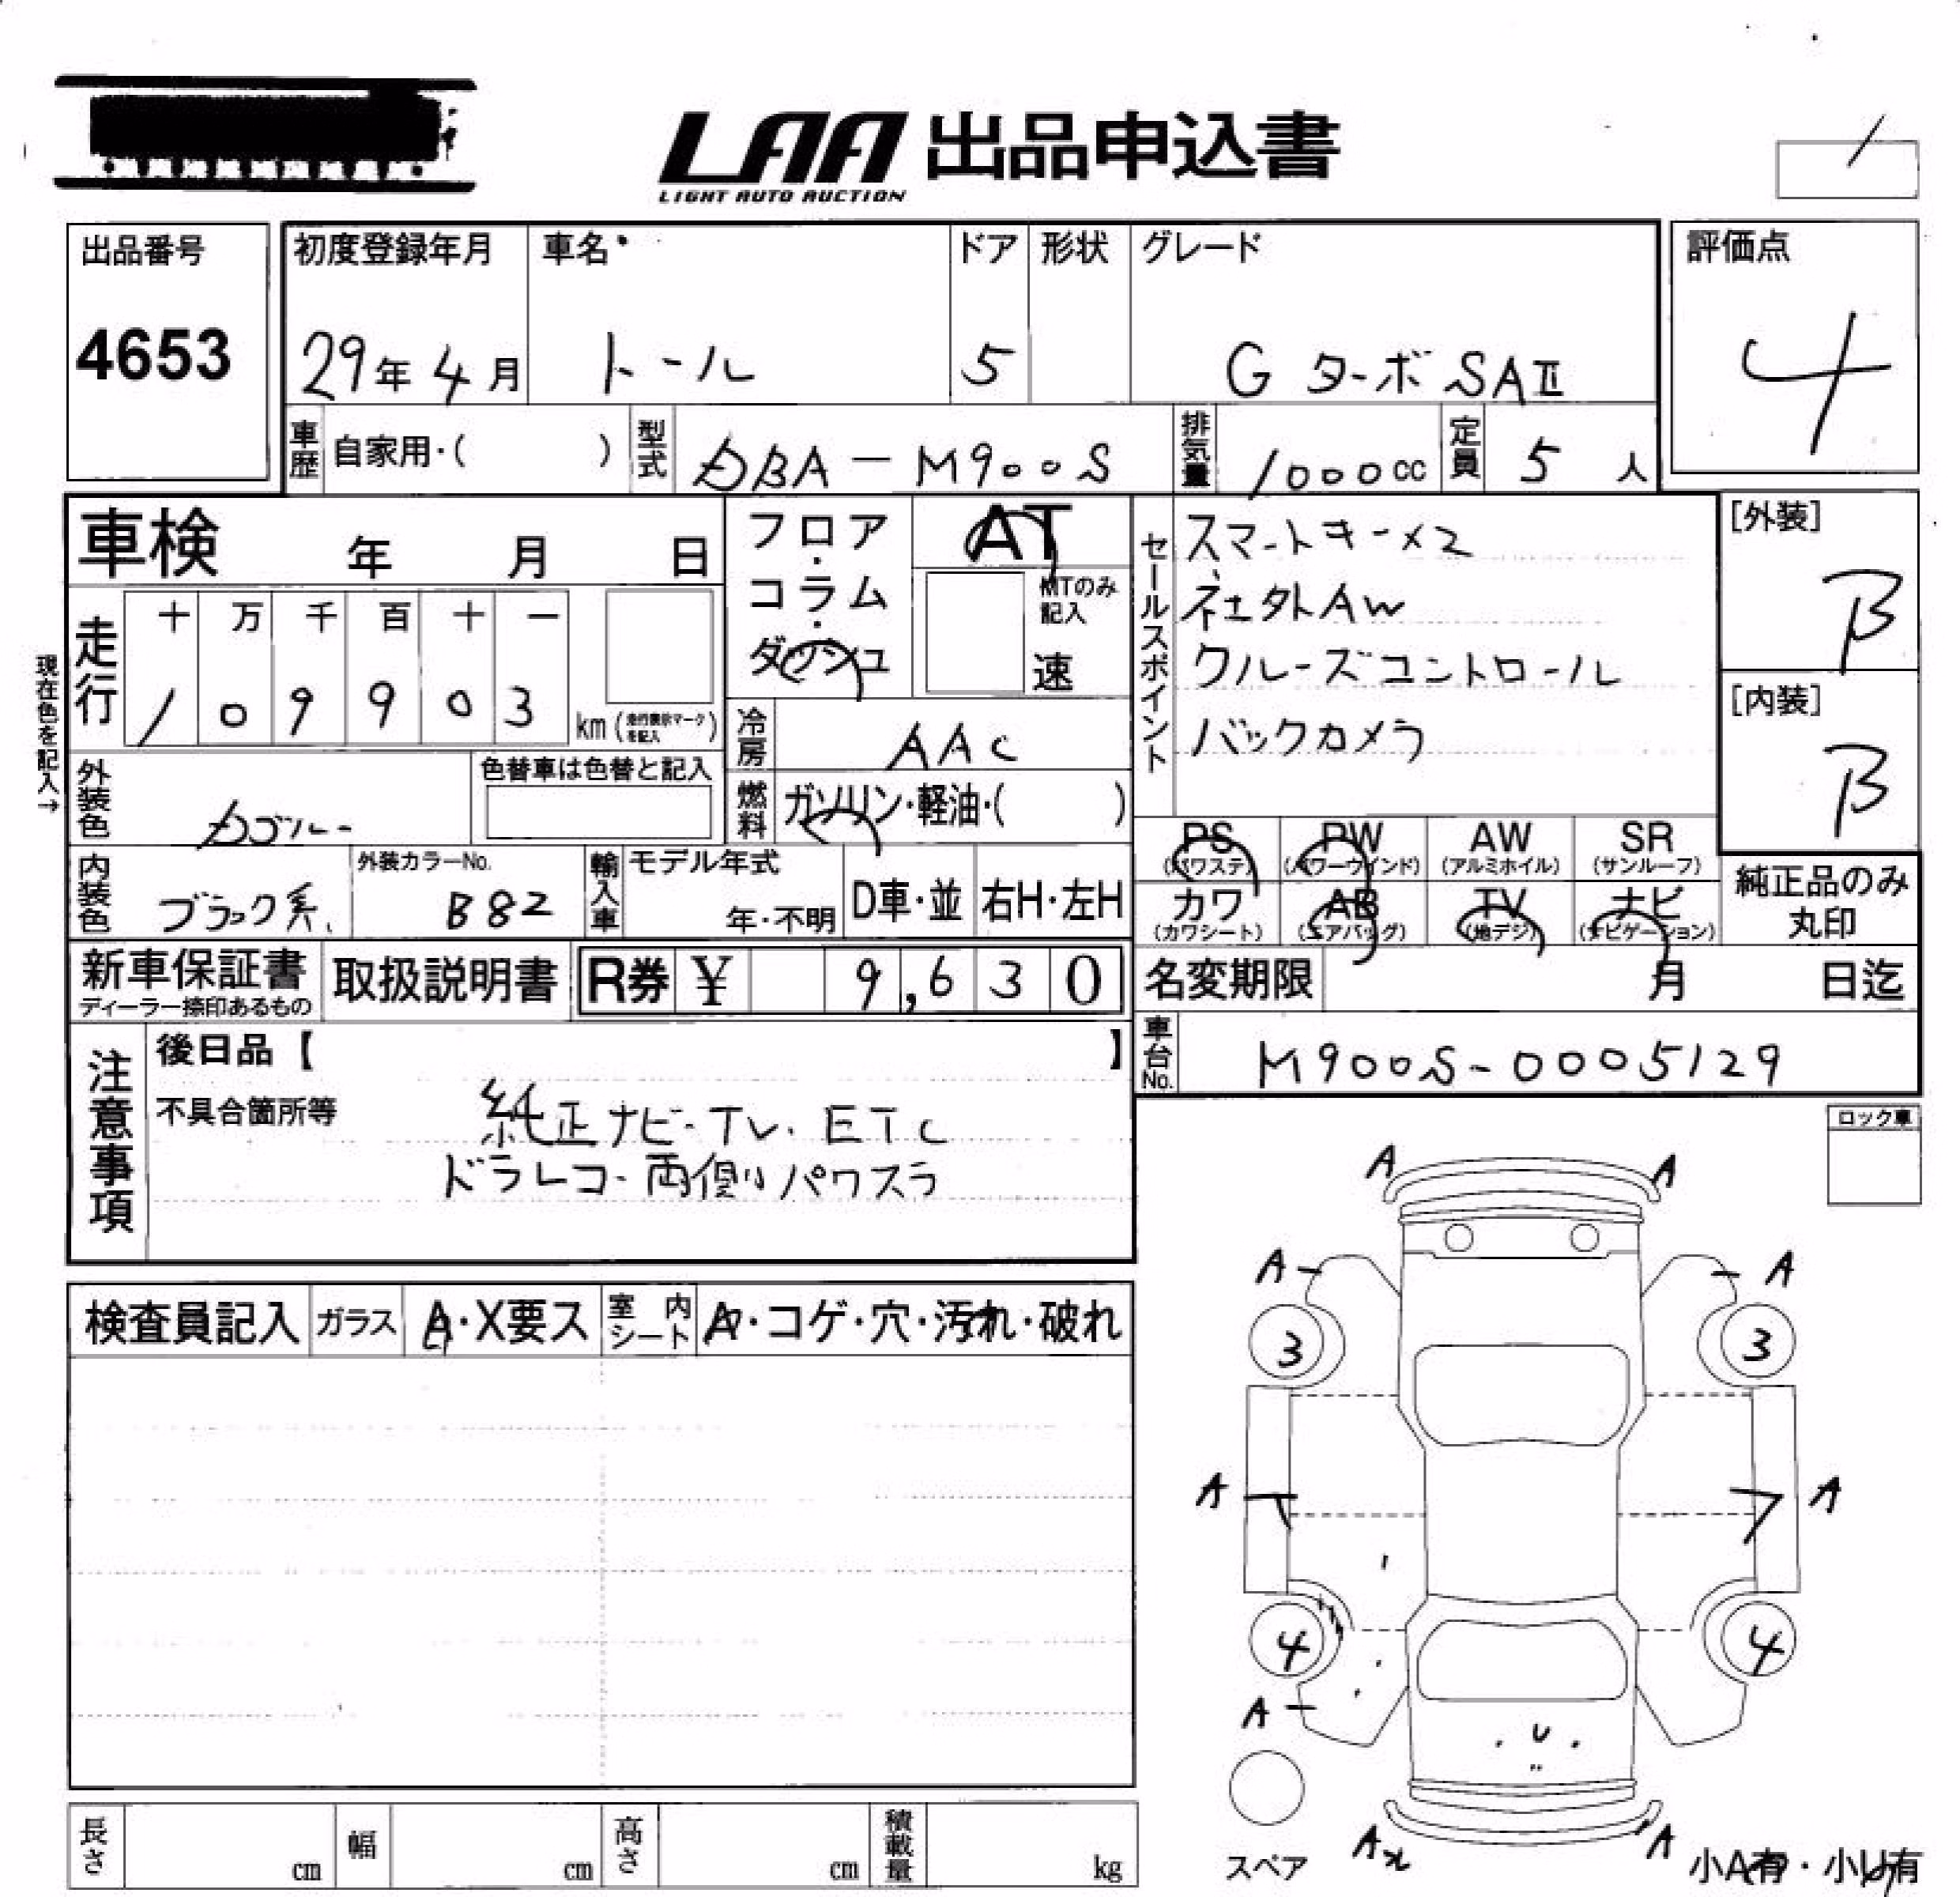 LAA 出品申込書
LIGHT AUTO AUCTION
出品番号
4653
初度登録年月
29年 4月
車名
トール
ドア
5
形状
グレード
G ターボ SAⅡ
評価点
4
車歴
自家用・( )
型式
DBA-M900S
排気量
1000cc
定員
5 人
車検 年 月 日
フロア・コラム・ダッシュ
AT
MTのみ記入
速
セールスポイント
スマートキー×2
社外AW
クルーズコントロール
バックカメラ
[外装]
B
[内装]
B
現在色を記入→
走行
十 万 千 百 十 一
1 0 9 9 0 3
km (走行表示マークを記入)
冷房
AAC
外装色
色替車は色替と記入
燃料
ガソリン・軽油・( )
PS (パワステ)
PW (パワーウインド)
AW (アルミホイル)
SR (サンルーフ)
カワ (カワシート)
AB (エアバッグ)
TV (地デジ)
ナビ (ナビゲーション)
純正品のみ
丸印
内装色
ブラック系
外装カラーNo.
B82
輸入車
モデル年式
年・不明
D車・並
右H・左H
新車保証書
ディーラー捺印あるもの
取扱説明書
R券 ¥ 9,630
名変期限 月 日迄
車台No.
M900S-0005129
注意事項
後日品【 】
不具合箇所等
純正ナビ・TV・ETC
ドラレコ・両側パワスラ
ロック車
A A
A A
3 3
A A
4 4
A
U
A A
検査員記入
ガラス
A・X要ス
室内シート
コゲ・穴・汚れ・破れ
長さ cm
幅 cm
高さ cm
積載量 kg
スペア
小A有・小U有